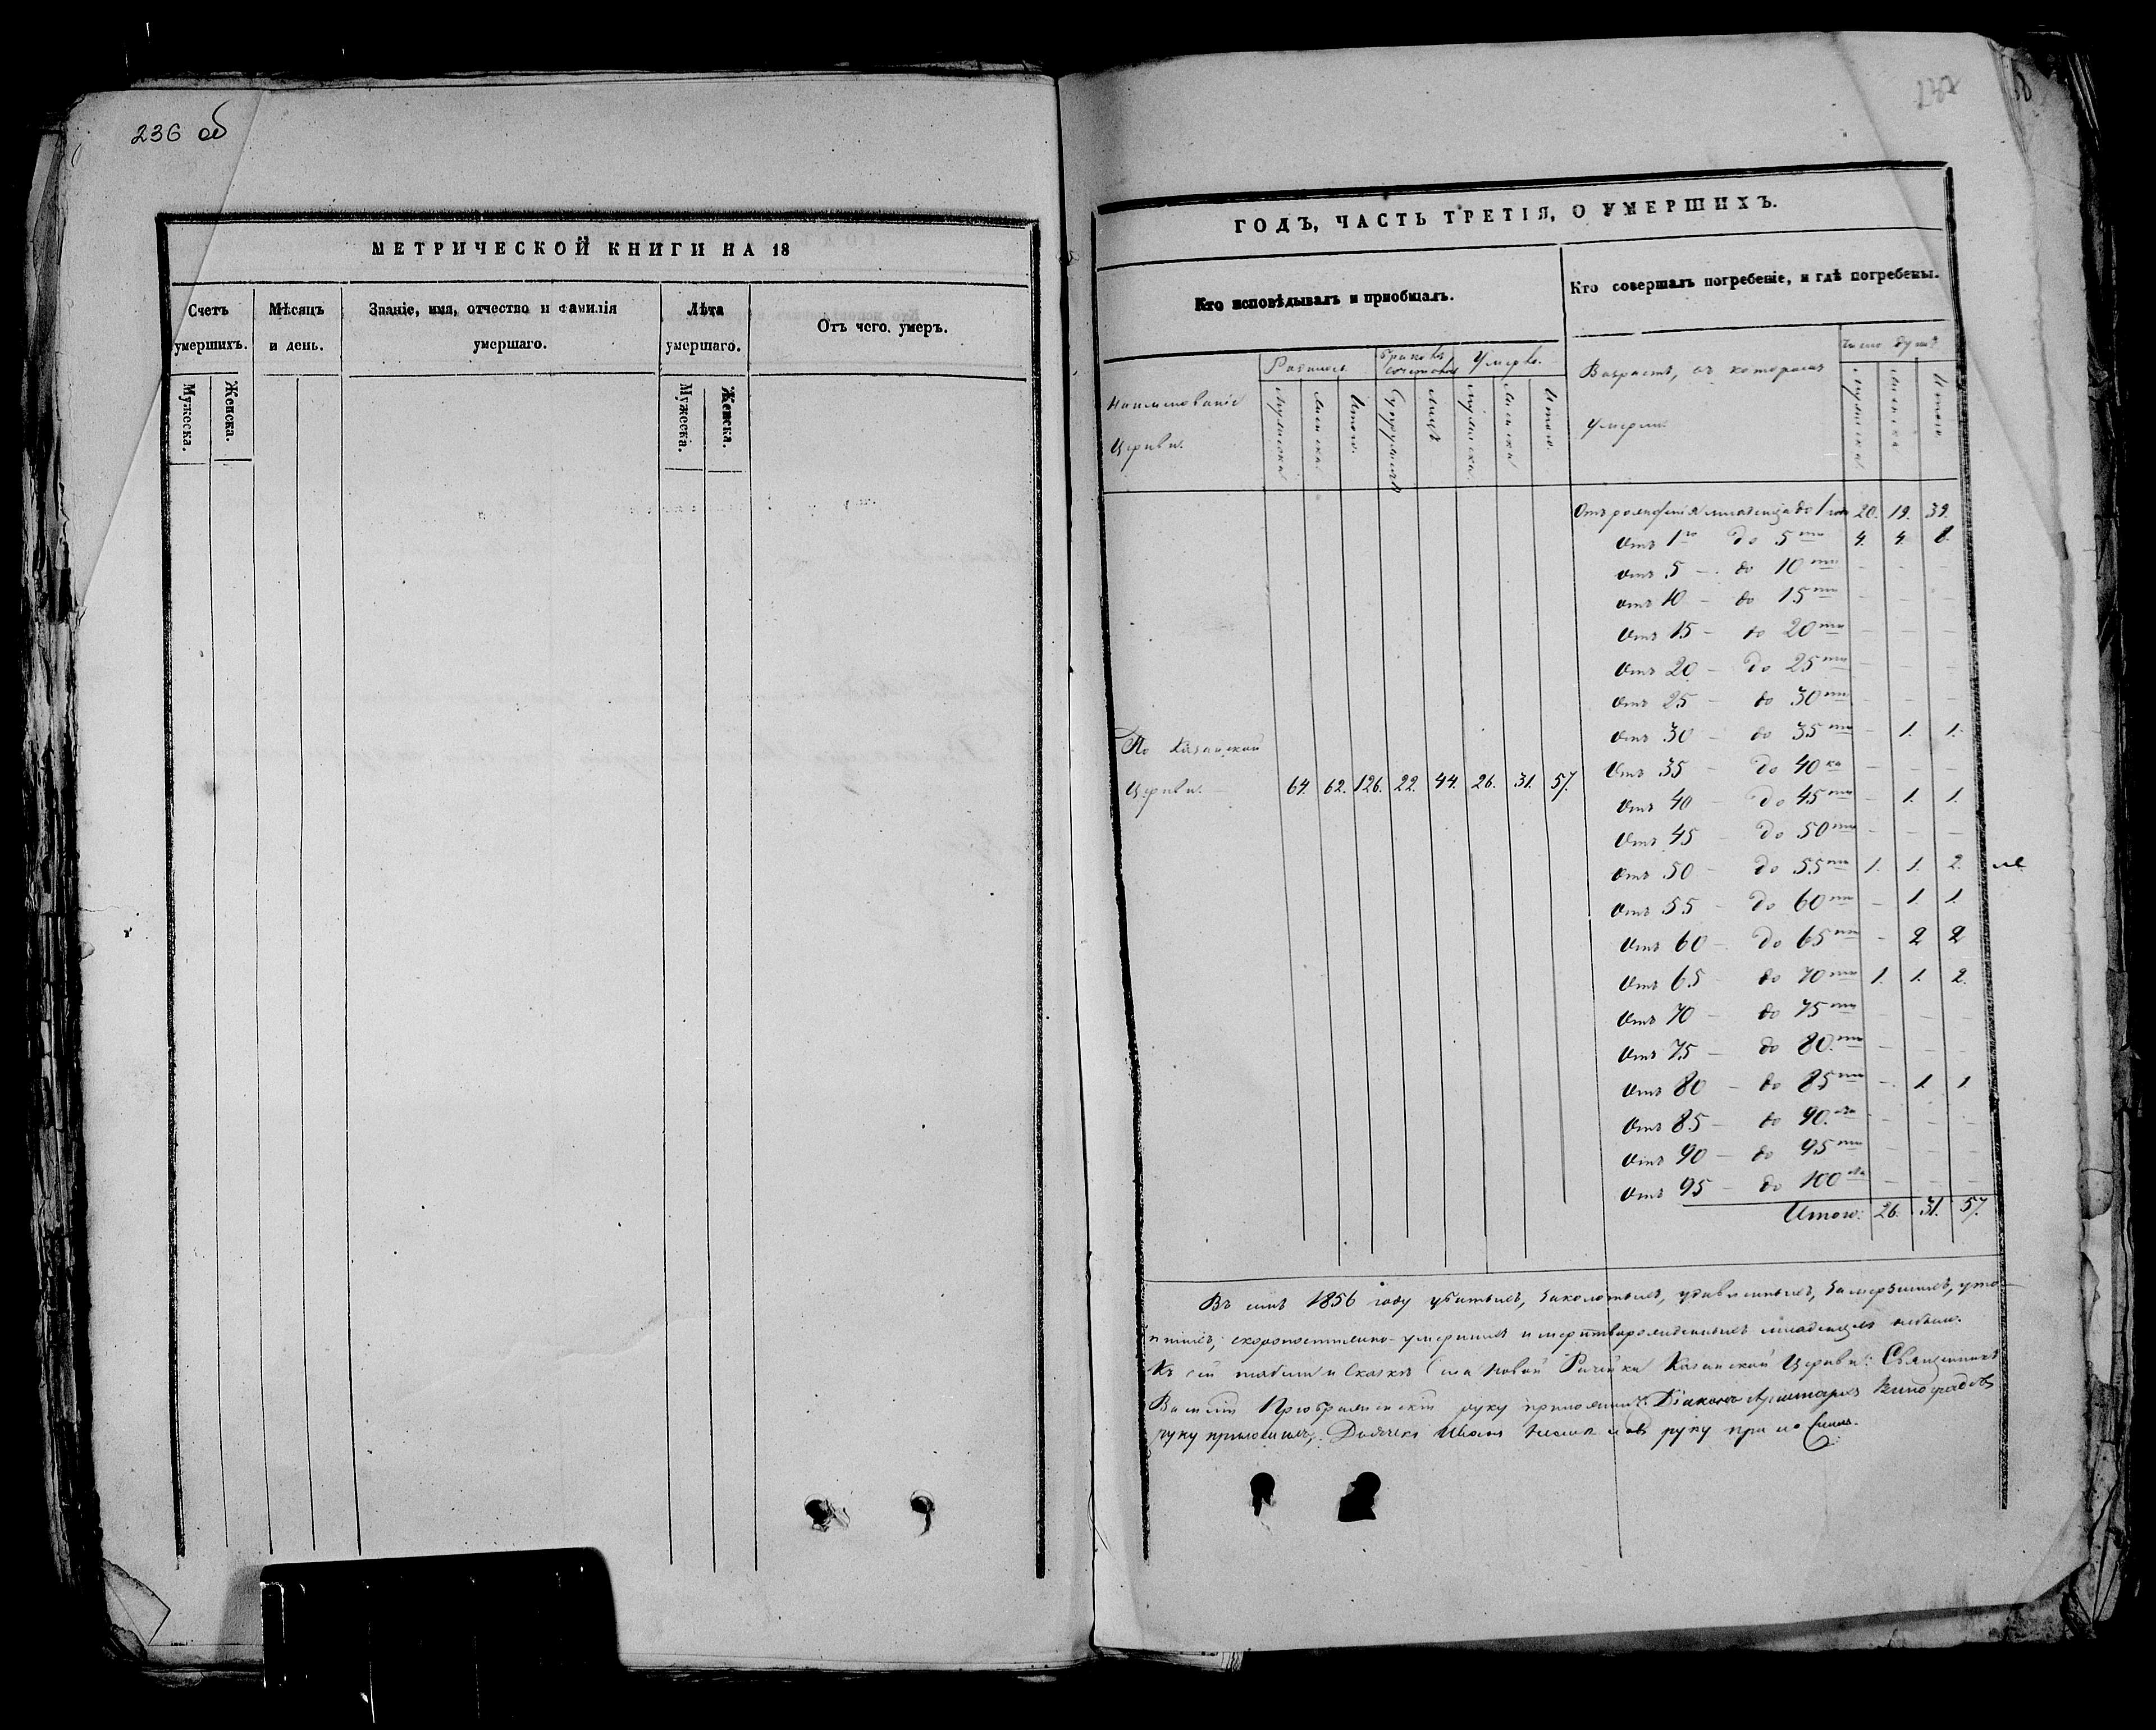 236 об
МЕТРИЧЕСКОЙ КНИГИ НА 18
Счетъ умершихъ.
Мужеска.
Женска.
Мѣсяцъ и день.
Званіе, имя, отчество и фамилія умершаго.
Лѣта умершаго.
Мужеска.
Женска.
Отъ чего умеръ.
237
ГОДЪ, ЧАСТЬ ТРЕТІЯ, О УМЕРШИХЪ.
Кто исповѣдывалъ и пріобщалъ.
Кто совершалъ погребеніе, и гдѣ погребены.
Наименованіе Церкви.
Родилось
Мужеска
Женска
Итого.
Браковъ
Супружествъ
Лицъ
Умерло.
Мужеска
Женска
Итого.
Возрастъ, въ которомъ Умерли
Число душъ
Мужеска
Женска
Итого
Отъ рожденія младенца до 1 года 20. 19. 39.
Отъ 1го до 5ти 4. 4. 8.
Отъ 5 — до 10ти — — —
Отъ 10 — до 15ти — — —
Отъ 15 — до 20ти — — —
Отъ 20 — до 25ти — — —
Отъ 25 — до 30ти — — —
Отъ 30 — до 35ти — 1. 1.
Отъ 35 — до 40ка — — —
Отъ 40 — до 45ти — 1. 1.
Отъ 45 — до 50ти — — —
Отъ 50 — до 55ти 1. 1. 2.
Отъ 55 — до 60ти — 1. 1.
Отъ 60 — до 65ти — 2 2
Отъ 65 — до 70ти 1. 1. 2.
Отъ 70 — до 75ти — — —
Отъ 75 — до 80ти — — —
Отъ 80 — до 85ти — 1. 1.
Отъ 85 — до 90. — — —
Отъ 90 — до 95ти — — —
Отъ 95 — до 100 — — —
Итого: 26. 31. 57.
По Казанской
Церкви. — 64. 62. 126. 22. 44. 26. 31. 57.
Въ семъ 1856 году убитыхъ, заколотыхъ, удавленныхъ, замерзшихъ, уто-
пшихъ, скоропостижно-умершихъ и мертворожденныхъ младенцевъ небыло.
Къ сей табели и Сказкѣ Села Новой Рачейки Казанской Церкви: Священникъ
Василій Преображенскій руку приложилъ. Діаконъ Аристархъ Виноградовъ
руку приложилъ, Дьячекъ Иванъ руку приложилъ.